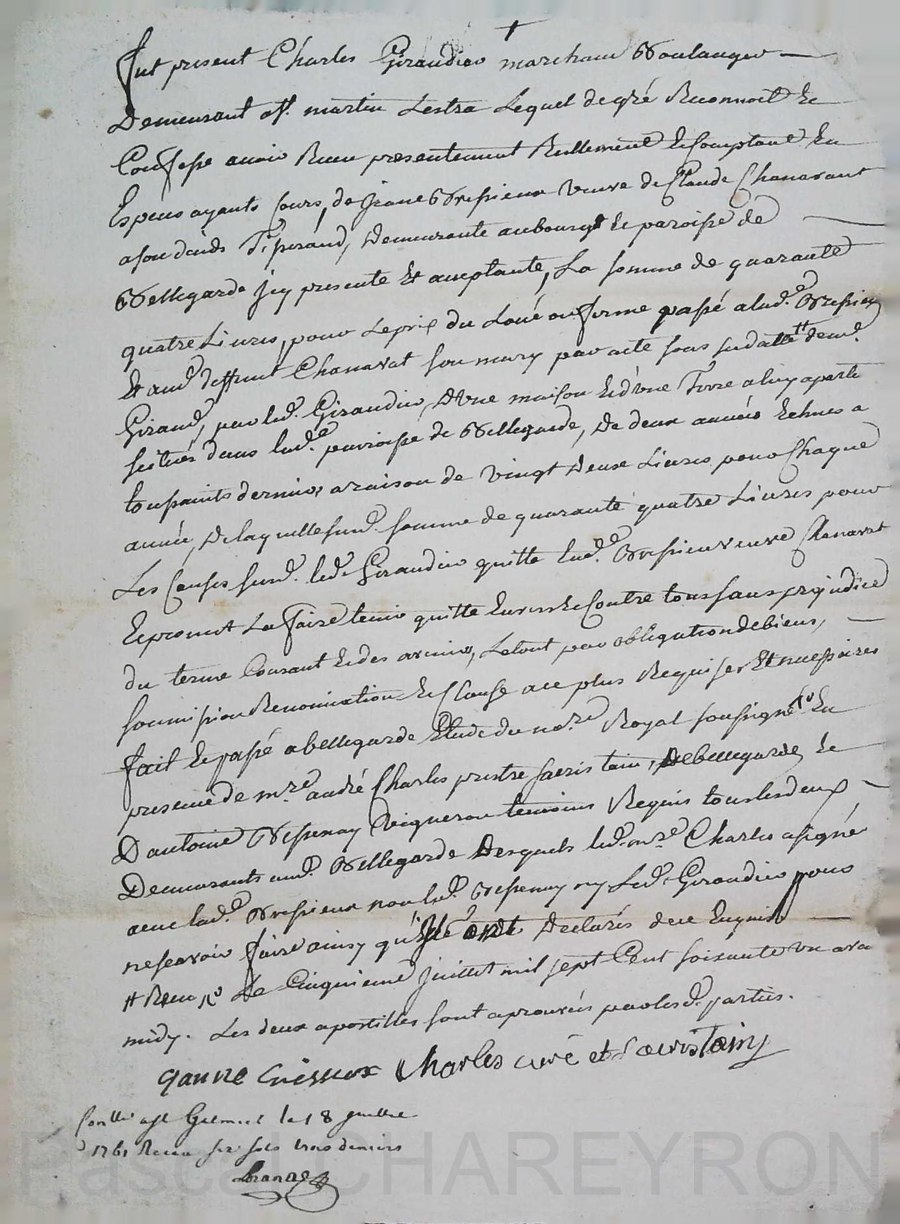 fut present Charles Giraudier marchand Boulanger
Demeurant a St. martin Lestra Lequel de gré Reconnoit Et
Confesse avoir Receu presentement Reellement Et Comptant En
Especes ayants Cours, de Jeane Bressieux veuve de Claude Chanavant
Demeurante au bourg Et paroisse de
Bellegarde Jcy presente Et acceptante, La somme de quarante
quatre Livres, pour Le prix du Loué ou ferme passé a lad.e Bressieux
Et aud. deffunt Chanavat son mary par acte sous sa datte # dem.e
Giraud, par led. Giraudier, D'une maison Et d'une Terre a luy aparte
scitués dans lad.e paroisse de Bellegarde, De deux années Echues a
toussaints dernier, a raison de vingt Deux Livres pour Chaque
année, De laquelle sus.d somme de quarante quatre Livres pour
Les Causes susd. led. Giraudier quitte lad.e Bressieux veuve Chanavat
Et promet La faire tenir quitte Envers Et Contre tous sans prejudice
du terme Courant Et des arriers, Le tout par obligation de biens,
soumission Renonciation Et Clause a ce plus Requises Et necessaires
fait Et passé a bellegarde Etude du no.re Royal soussigné En
presence de m.re andré Charles prestre sacristain, De bellegarde, Et
D'antoine Bressenay vigneron temoins Requis tous les deux
Demeurants aud. Bellegarde Desquels led. m.re Charles a signé
avec lad.e Bressieux non led. Bressenay ny Led. Giraudier pour
ne scavoir faire ainsy qu'ils ont Declarés de ce Enquis
# Receu Le Cinquieme Juillet mil sept Cent soixante un ava
midy. Les deux apostilles sont aprouvées par lesd. parties.
Charles curé et Sacristain
Conllé a St Galmier le 18 Juillet
1761 Receu six sols trois deniers
Pascal CHAREYRON